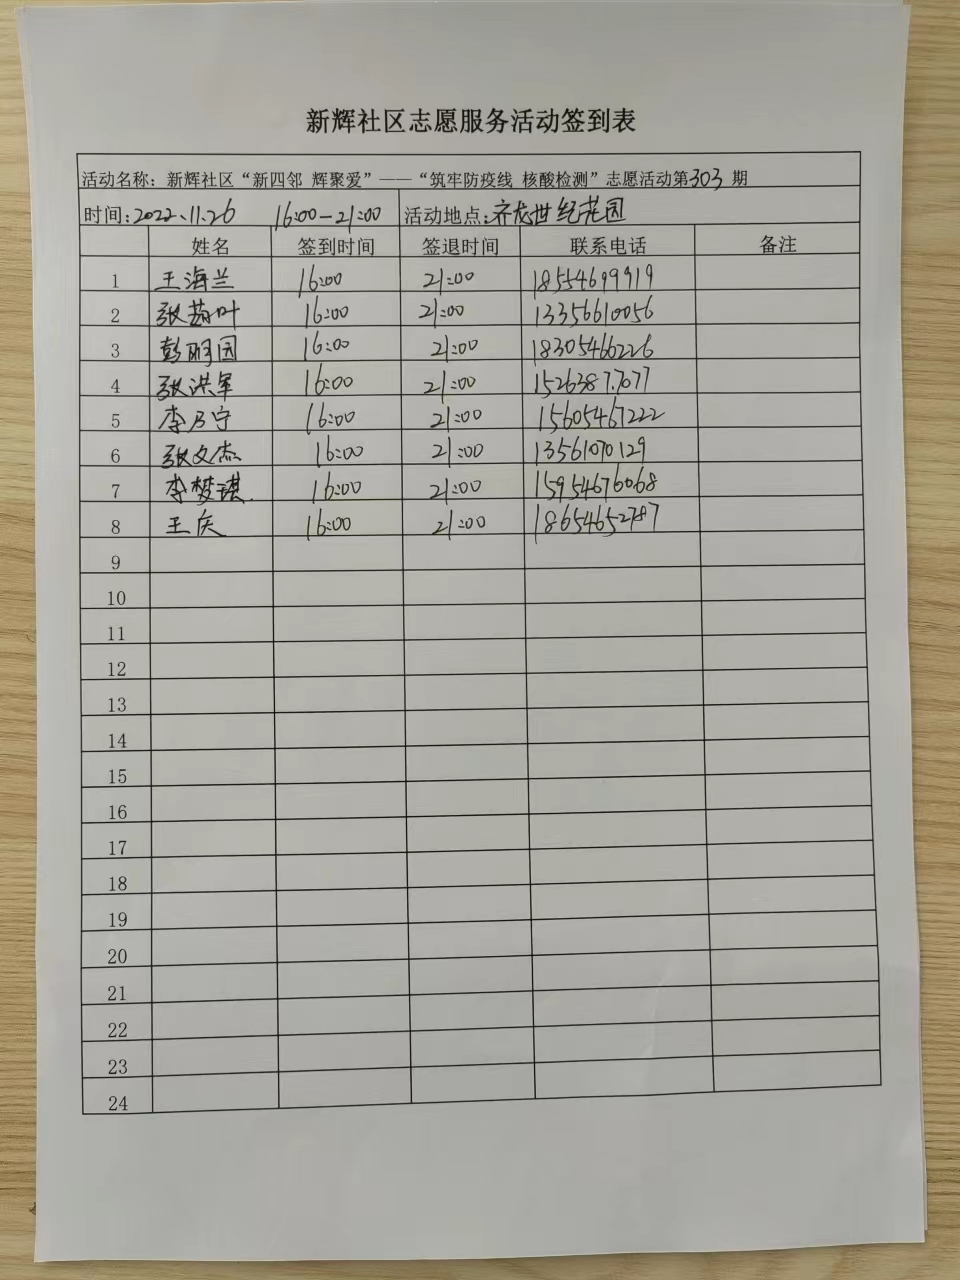 新辉社区志愿服务活动签到表
活动名称：新辉社区“新四邻 辉聚爱”——“筑牢防疫线 核酸检测”志愿活动第303期
时间：2022.11.26 16:00-21:00 活动地点：齐龙世纪花园
姓名 签到时间 签退时间 联系电话 备注
1 王海兰 16:00 21:00 18554699919
2 张 叶 16:00 21:00 13356610056
3 彭丽园 16:00 21:00 18305466226
4 张洪军 16:00 21:00 15263877077
5 李乃宁 16:00 21:00 15605467222
6 张文杰 16:00 21:00 13561070129
7 李梦琪. 16:00 21:00 15954676068
8 王庆 16:00 21:00 18654652787
9
10
11
12
13
14
15
16
17
18
19
20
21
22
23
24